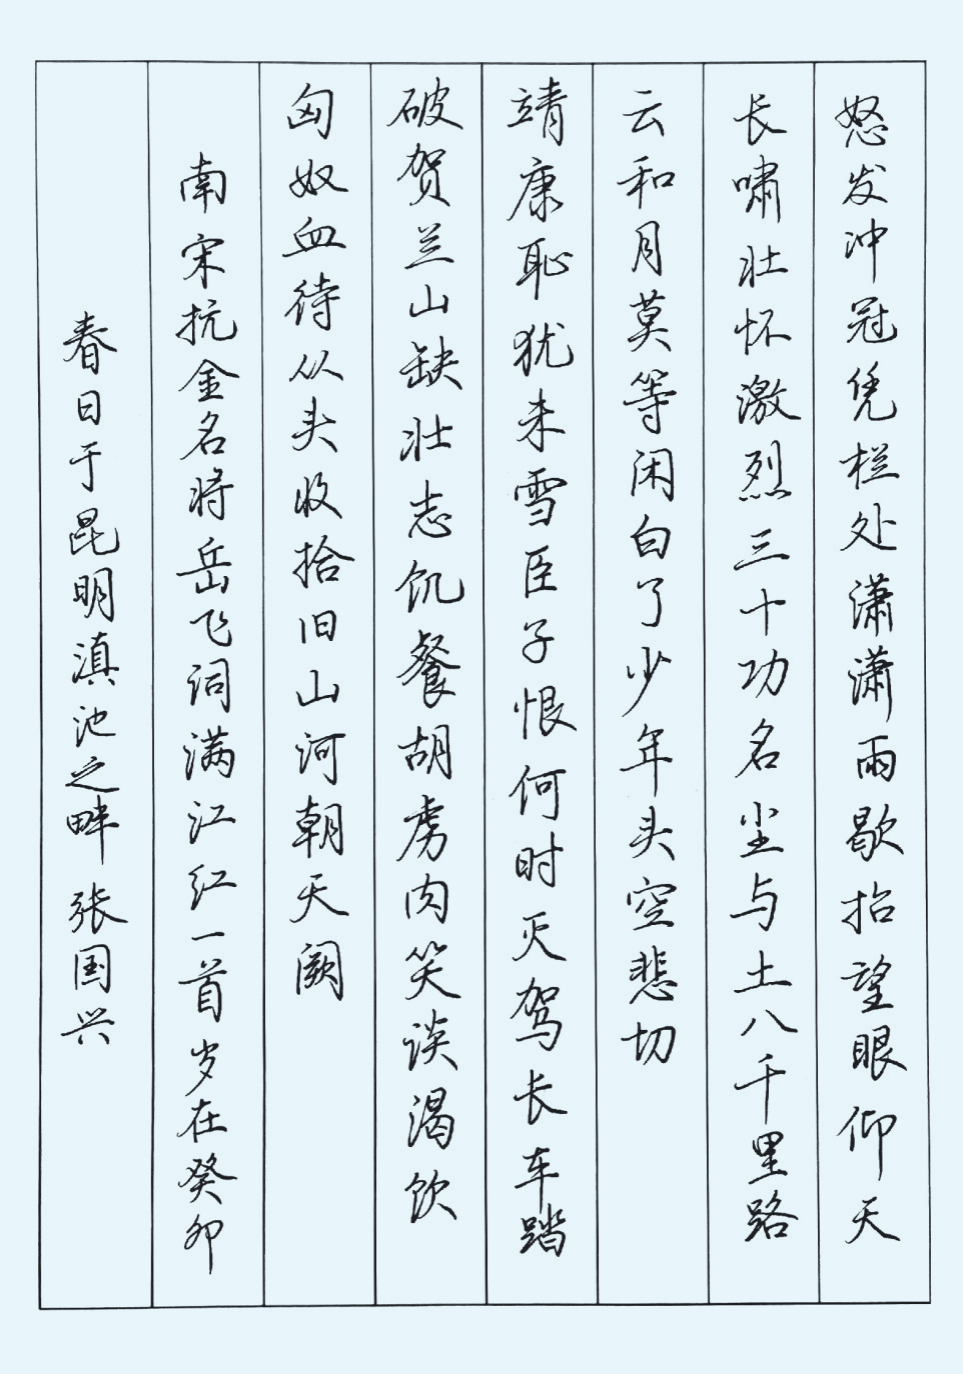 怒发冲冠凭栏处潇潇雨歇抬望眼仰天
长啸壮怀激烈三十功名尘与土八千里路
云和月莫等闲白了少年头空悲切
靖康耻犹未雪臣子恨何时灭驾长车踏
破贺兰山缺壮志饥餐胡虏肉笑谈渴饮
匈奴血待从头收拾旧山河朝天阙
南宋抗金名将岳飞词满江红一首岁在癸卯
春日于昆明滇池之畔张国兴